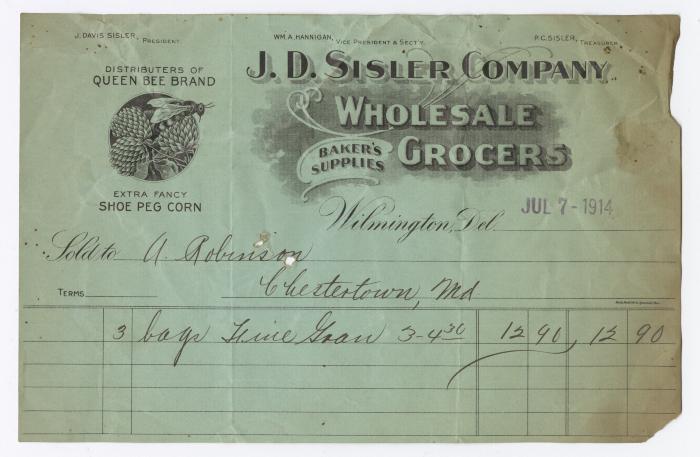 J. DAVIS SISLER, PRESIDENT.
WM. A. HANNIGAN, VICE PRESIDENT & SECT'Y.
P. C. SISLER, TREASURER.
DISTRIBUTERS OF
QUEEN BEE BRAND
EXTRA FANCY
SHOE PEG CORN
J. D. SISLER COMPANY
WHOLESALE
BAKER'S SUPPLIES
GROCERS
Wilmington, Del. JUL 7-1914
Sold to A. Robinson
Chestertown, Md
TERMS
3 bags Fine Gran 3-4 30 12 90 12 90